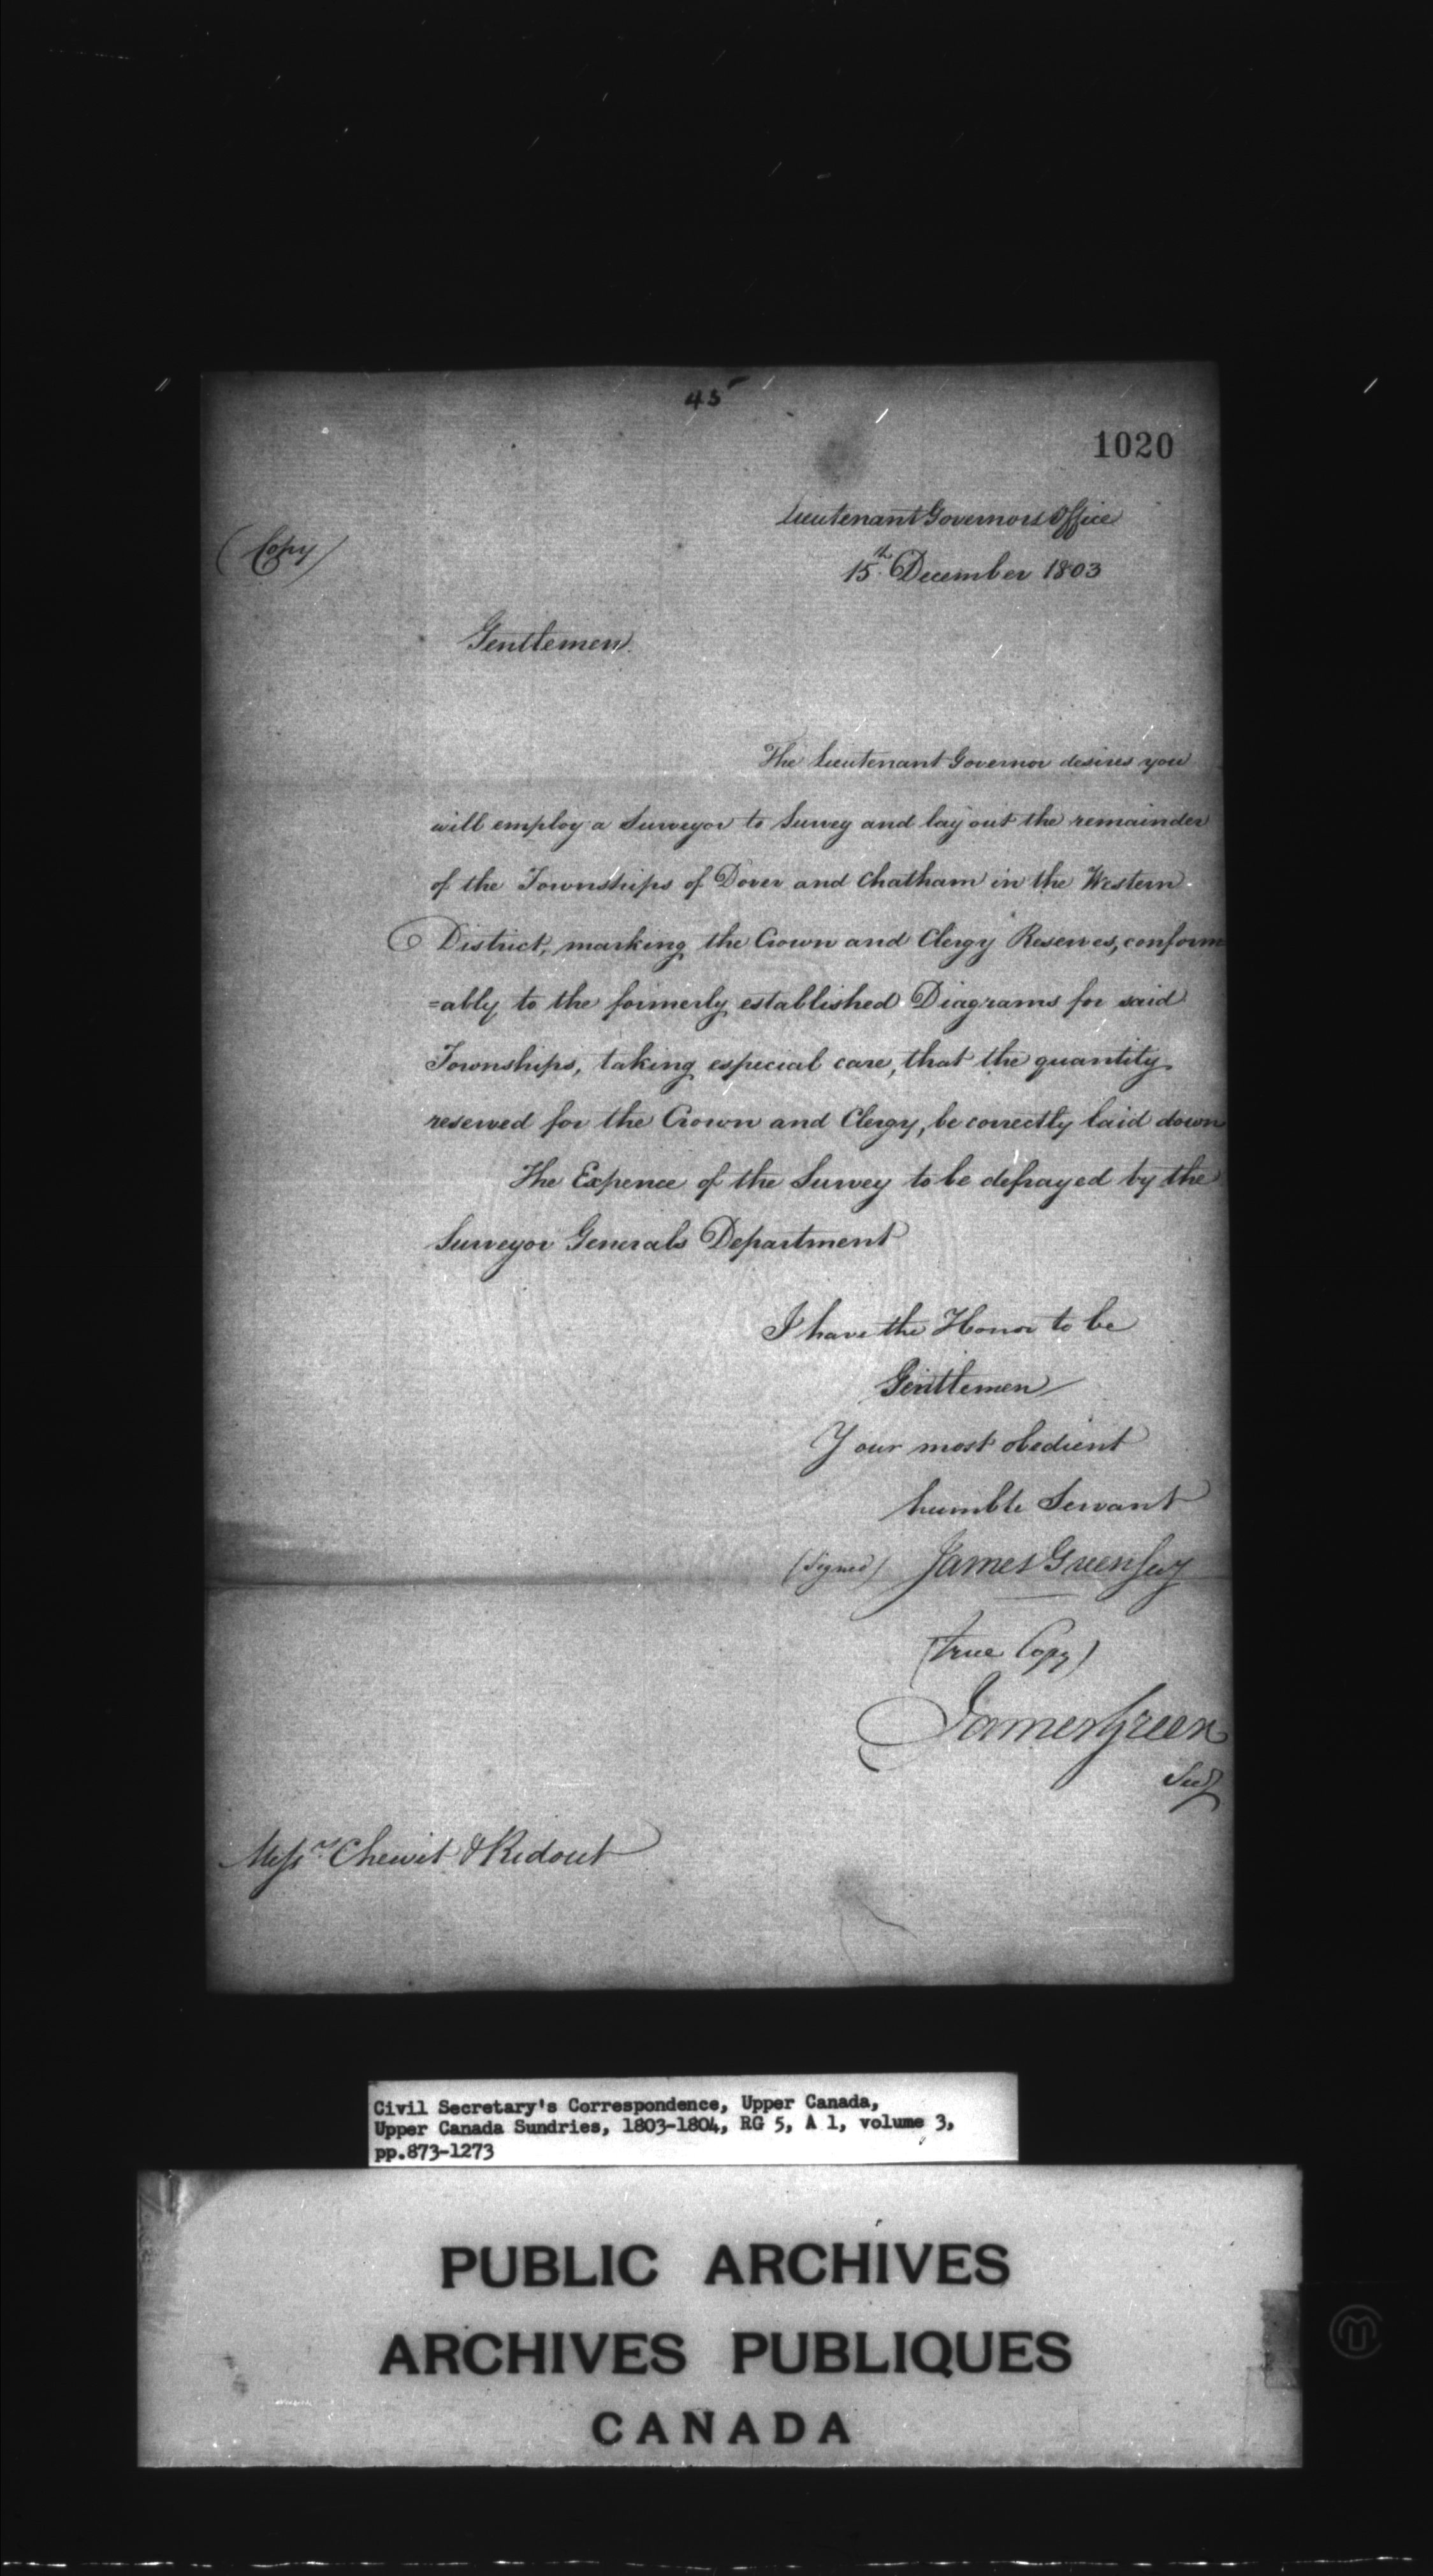 45
1020
Lieutenant Governors Office
(Copy)
15th December 1803
Gentlemen
The Lieutenant Governor desires you
will employ a Surveyor to Survey and lay out the remainder
of the Townships of Dover and Chatham in the Western
District, marking the Crown and Clergy Reserves, conform
=ably to the formerly established Diagrams for said
Townships, taking especial care, that the quantity
reserved for the Crown and Clergy, be correctly laid down
The Expence of the Survey to be defrayed by the
Surveyor Generals Department
I have the Honor to be
Gentlemen
Your most obedient
humble Servant
(Signed) James Green Secy
(true Copy)
James Green
Secy
Messrs Chewit & Ridout
Civil Secretary's Correspondence, Upper Canada,
Upper Canada Sundries, 1803-1804, RG 5, A 1, volume 3,
pp.873-1273
PUBLIC ARCHIVES
ARCHIVES PUBLIQUES
CANADA